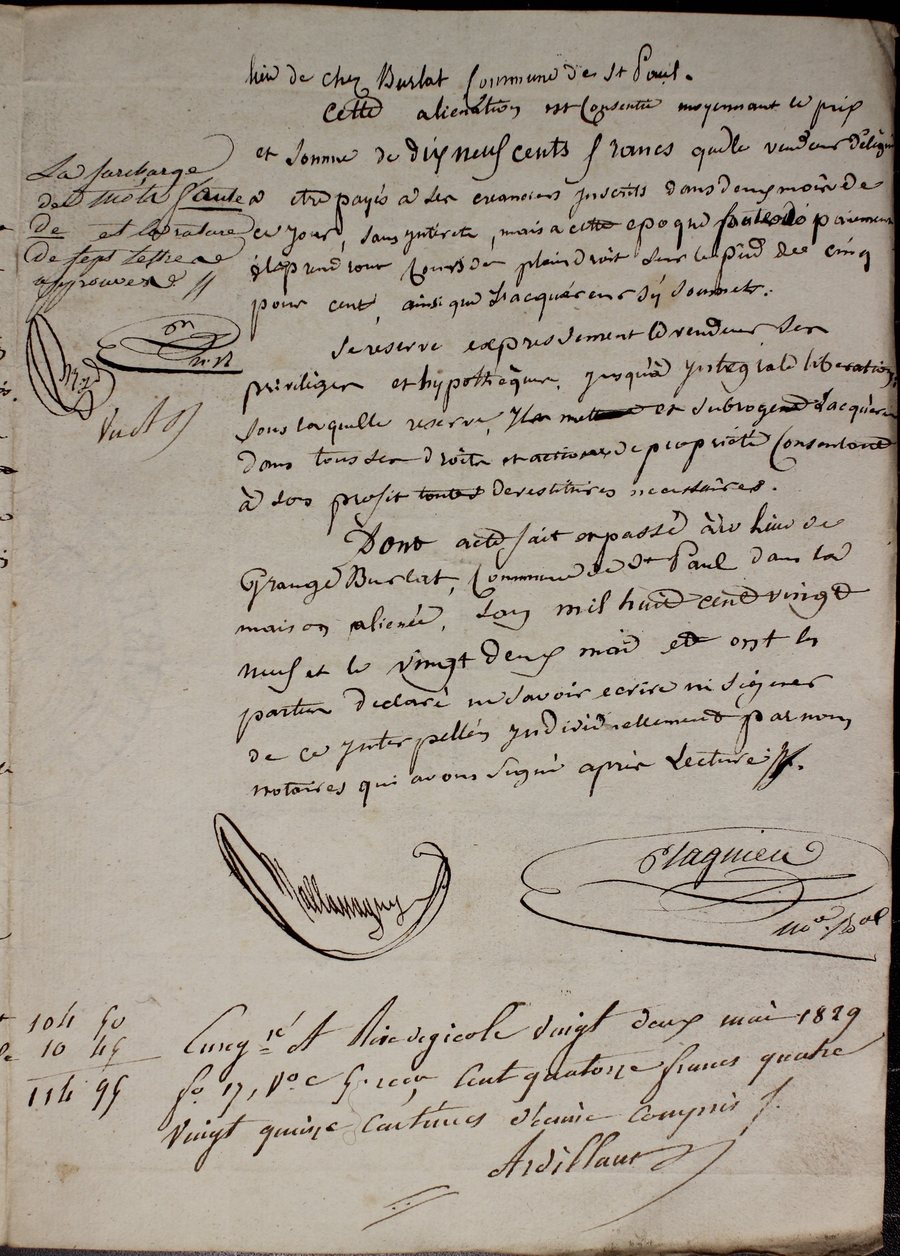 lieu de chez Burlat Commune de St Paul.
Cette alienation est Consentie moyennant le prix
et Somme de dix neuf cents francs quelle vendeur délègue
a etre payés a ses creanciers Inscrits dans deux mois de
ce jour, sans Interets, mais a cette epoque faute de paiement
il prendront Cours de plein droit sur le pied de cinq
pour cent, ainsi que l'acquéreur s'y soumet.
Se reserve expressement le vendeur ses
priviléges et hypothèques, jusqu'a Intégrale liberation,
sous laquelle reserve, Il met et subroge l'acquéreur
dans tous ses droits et actions de propriété Consentant
à son profit toutes devestitures necessaires.
Dont acte fait et passé au lieu de
Grange Burlat, Commune de St Paul dans la
maison alienée, L'an mil huit cent vingt
neuf et le vingt deux mai et ont les
parties declaré ne savoir ecrire ni signer
de ce Interpellés Individuellement par nous
notaires qui avons signé après Lecture.
La surcharge
des mots faute
de et la rature
de sept lettres
approuvés
Plagnieu
104 50
10 45
114 95
Enreg ré à Rive de gicole vingt deux mai 1829
fo 17, Vo c 5 reçu Cent quatorze francs quatre
Vingt quinze Centimes dixième compris
Ardillant